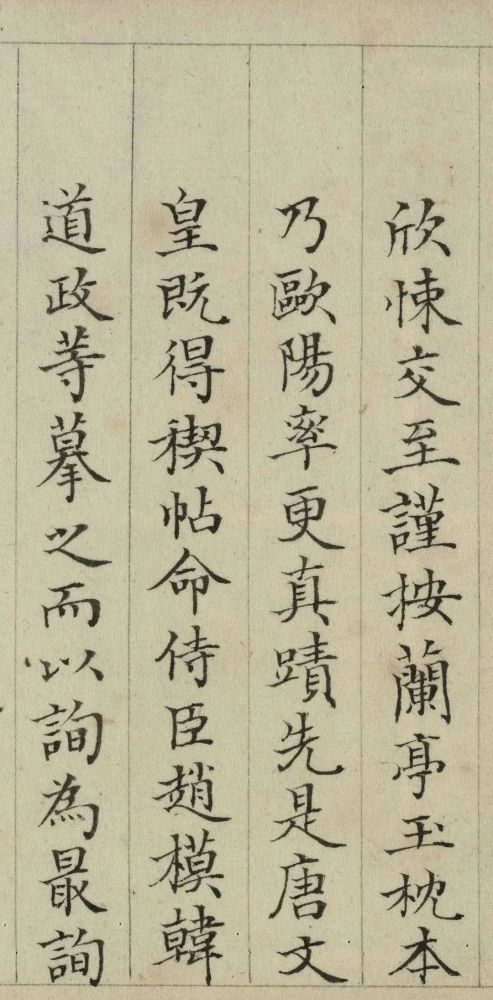 欣悚交至謹按蘭亭玉枕本
乃歐陽率更真蹟先是唐文
皇既得稧帖命侍臣趙模韓
道政等摹之而以詢為最詢